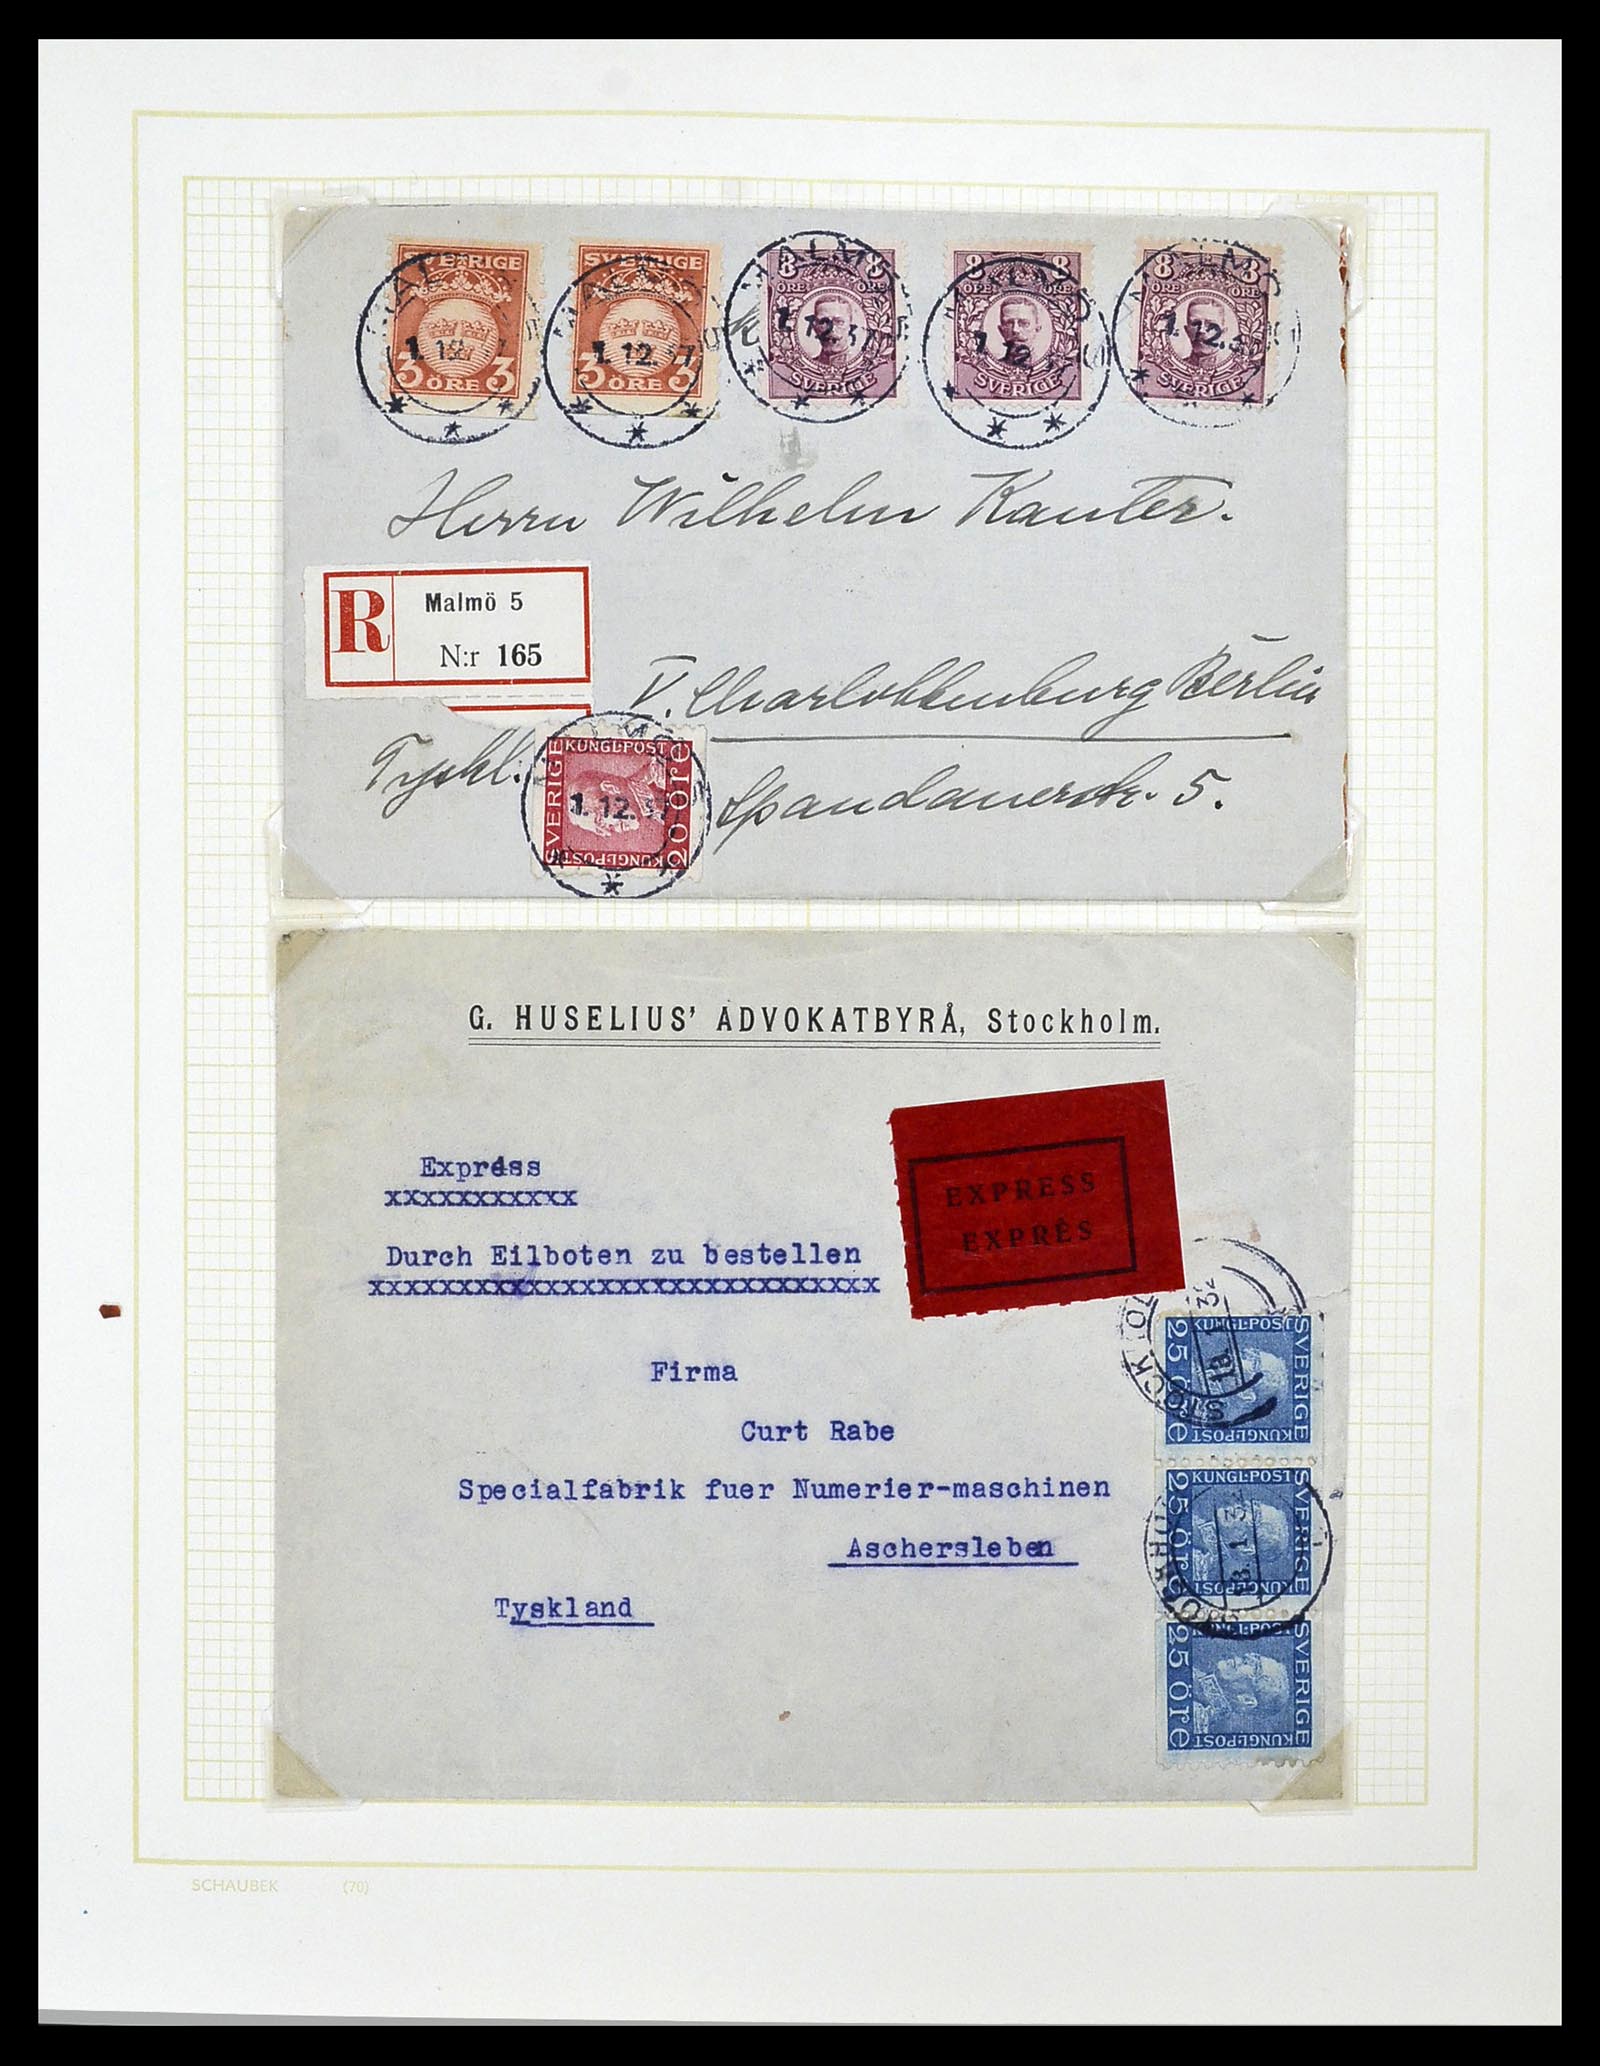 SVERIGE
3 ÖRE 3
SVERIGE
3 ÖRE 3
8 8
ÖRE ÖRE
SVERIGE
8 8
ÖRE ÖRE
SVERIGE
8 8
ÖRE ÖRE
SVERIGE
MALMÖ
1.12.37
MALMÖ
1.12.37
MALMÖ
1.12.37
Herrn Wilhelm Kanter.
R Malmö 5
N:r 165
V. Charlottenburg Berlin
Tyskl.
Spandauerstr. 5.
SVERIGE
KUNGL·POST
20 öre
KUNGL·POST
1.12.37
G. HUSELIUS' ADVOKATBYRÅ, Stockholm.
EXPRESS
EXPRÈS
Express
xxxxxxxxxxx
Durch Eilboten zu bestellen
Firma
Curt Rabe
Specialfabrik fuer Numerier-maschinen
Aschersleben
Tyskland
KUNGL·POST
SVERIGE
25 öre
KUNGL·POST
KUNGL·POST
SVERIGE
25 öre
KUNGL·POST
KUNGL·POST
SVERIGE
25 öre
KUNGL·POST
SCHAUBEK (70)